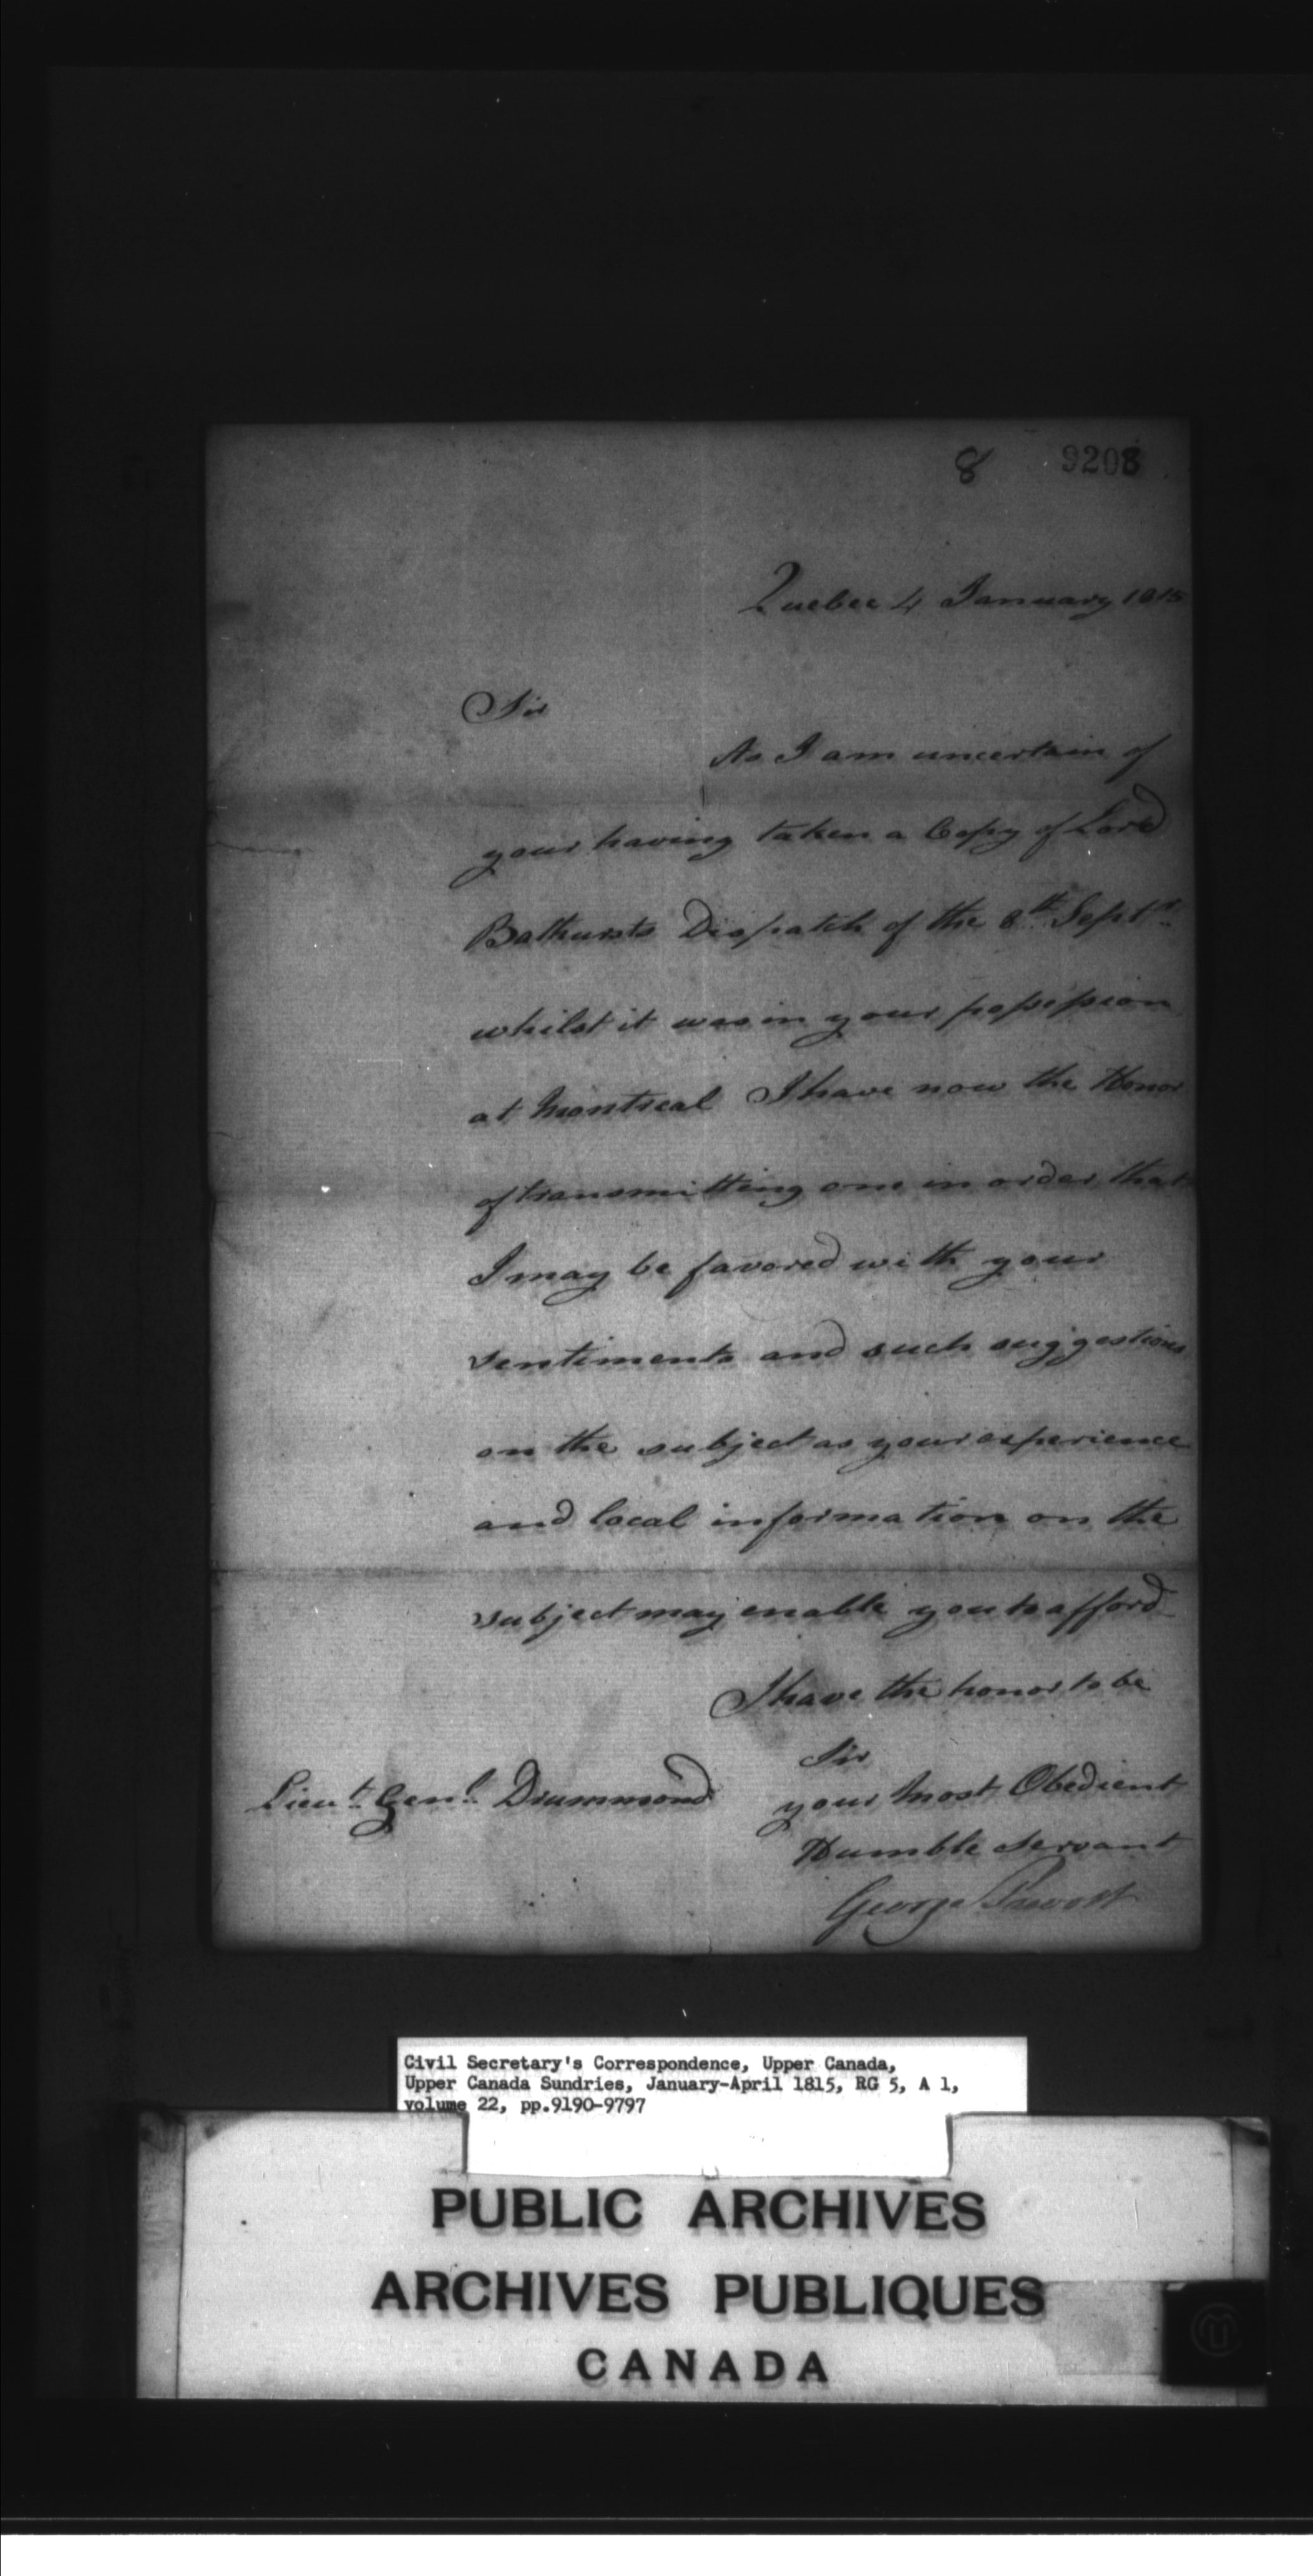 8 9208
Quebec 4 January 1815
Sir
As I am uncertain of
your having taken a Copy of Lord
Bathursts Dispatch of the 8th Septr
whilst it was in your possession
at Montreal I have now the Honor
of transmitting one in order that
I may be favored with your
sentiments and such suggestions
on the subject as your experience
and local information on the
subject may enable you to afford
I have the honor to be
Sir
your Most Obedient
Humble Servant
George Prevost
Lieut. Genl. Drummond
Civil Secretary's Correspondence, Upper Canada,
Upper Canada Sundries, January-April 1815, RG 5, A 1,
volume 22, pp.9190-9797
PUBLIC ARCHIVES
ARCHIVES PUBLIQUES
CANADA